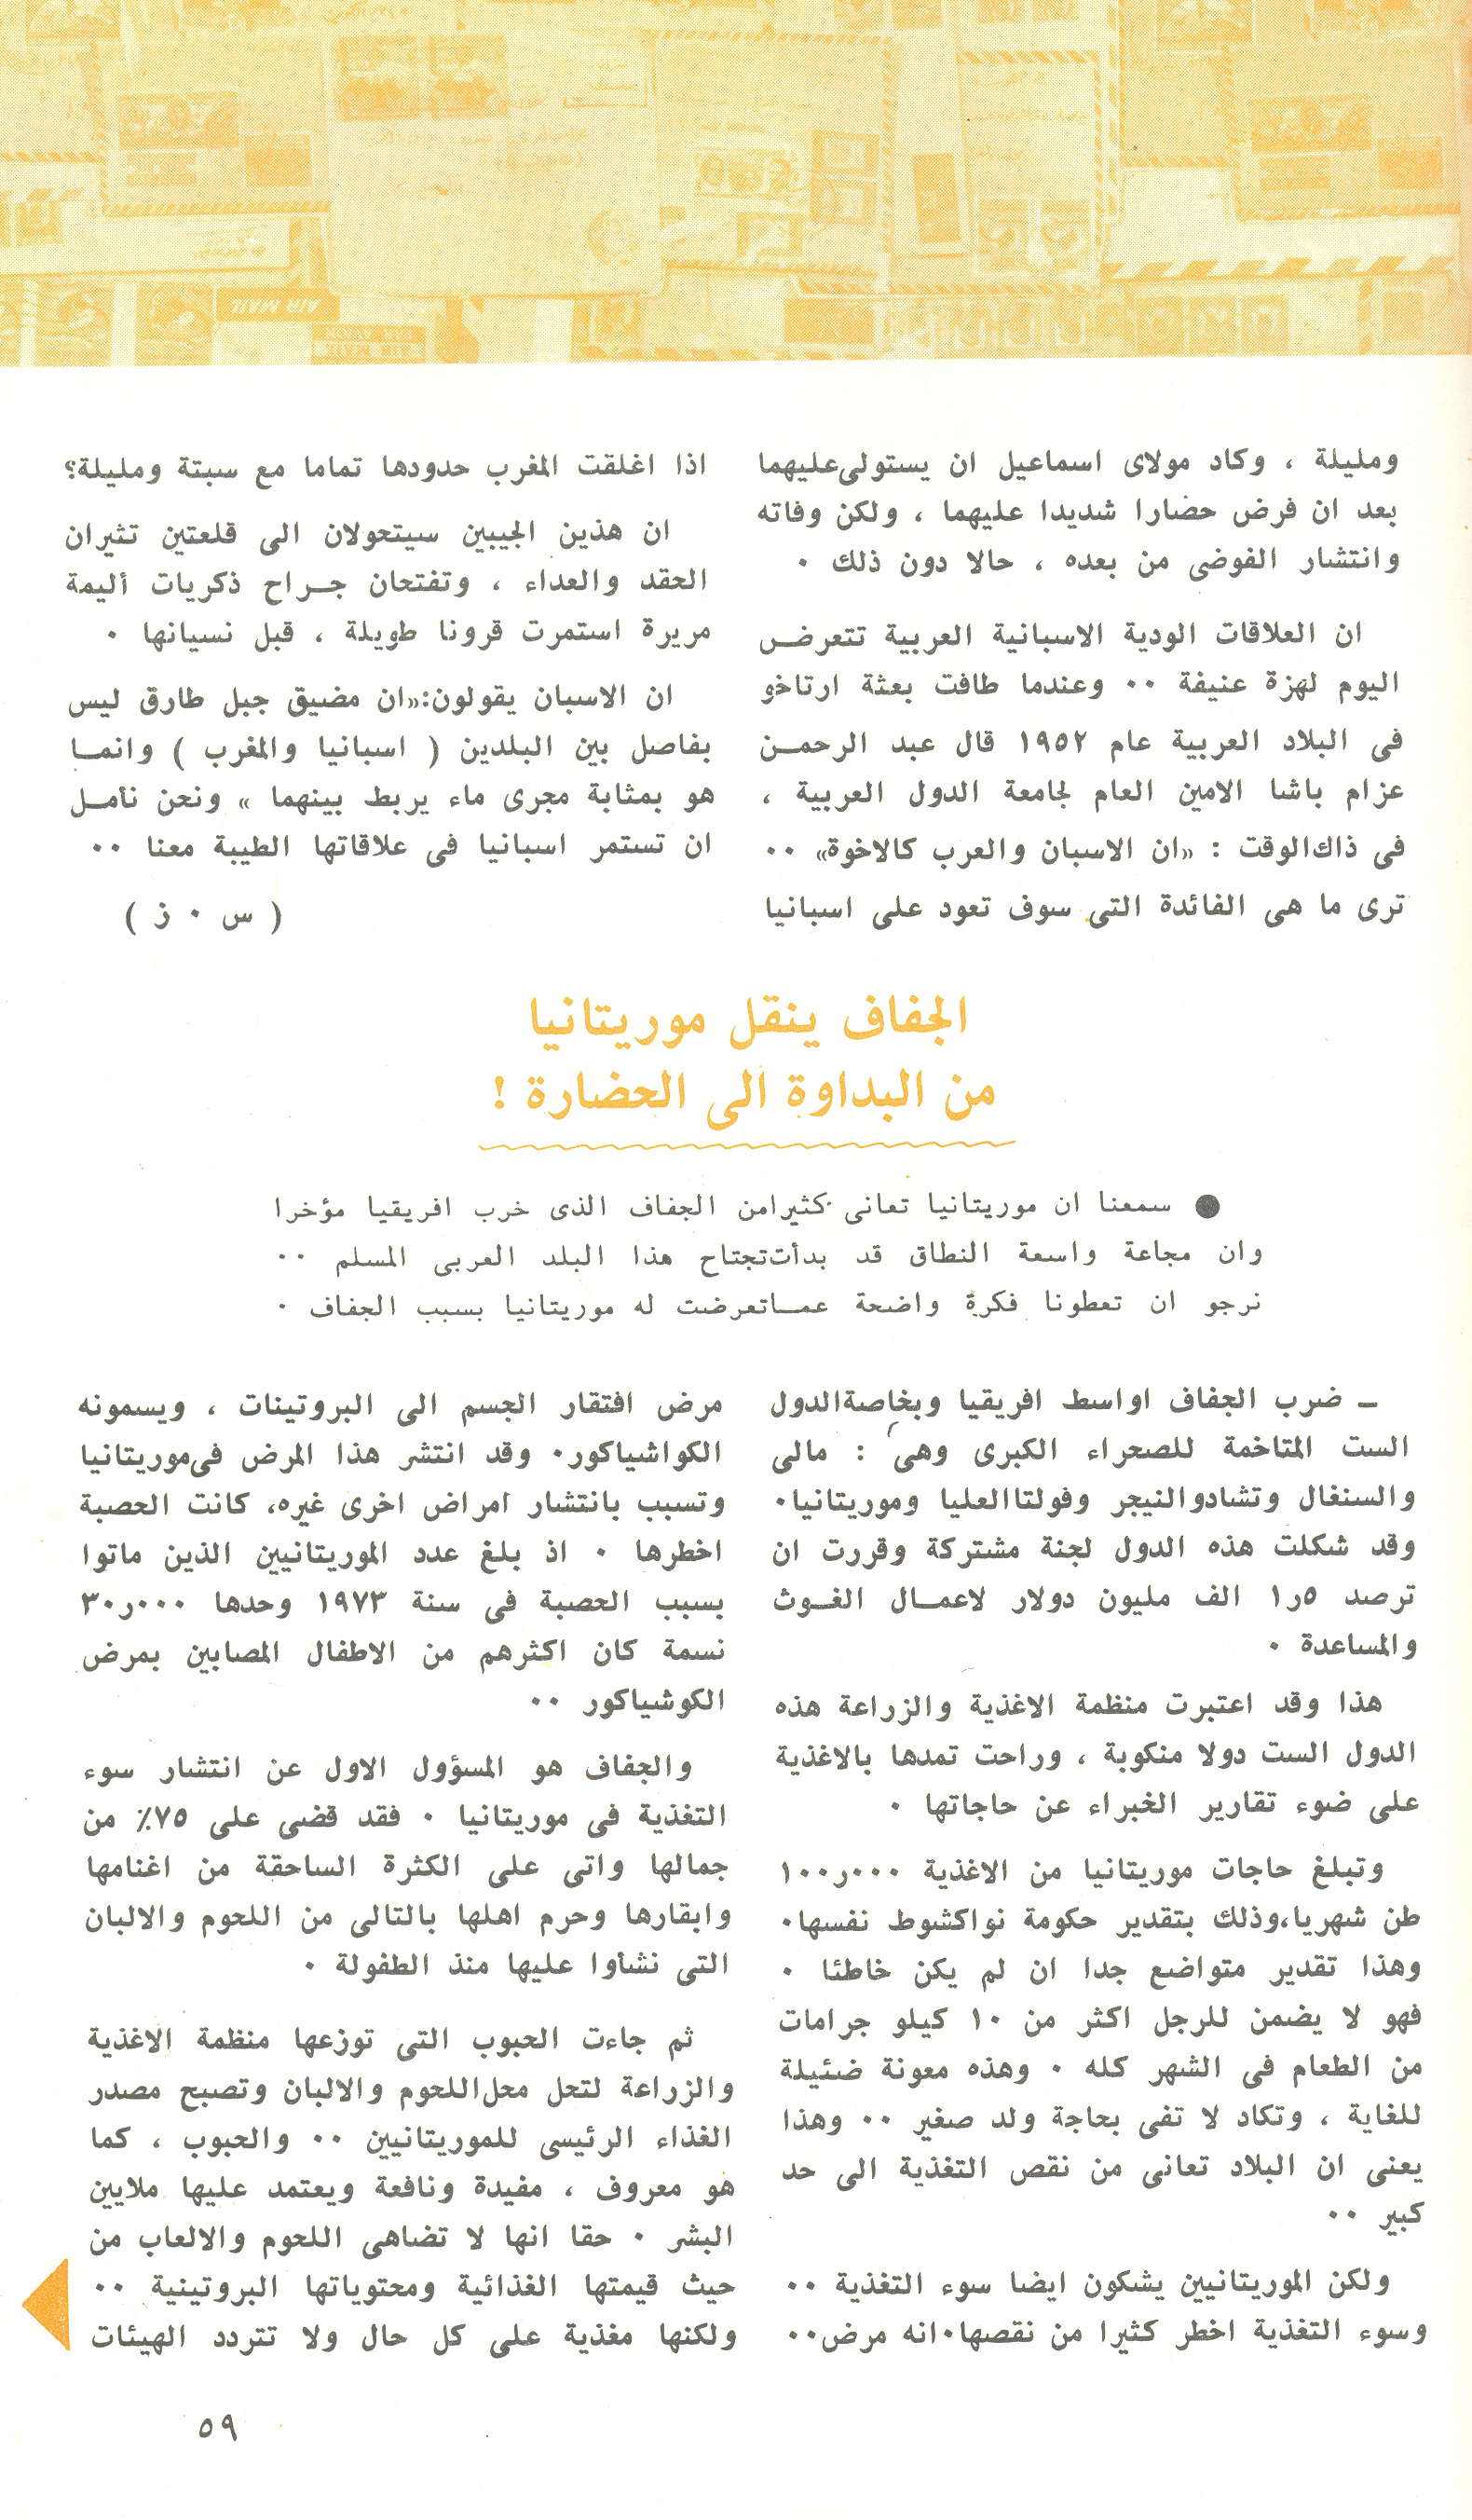 ومليلة ، وكاد مولاى اسماعيل ان يستولى عليهما
بعد ان فرض حضارا شديدا عليهما ، ولكن وفاته
وانتشار الفوضى من بعده ، حالا دون ذلك ٠
ان العلاقات الودية الاسبانية العربية تتعرض
اليوم لهزة عنيفة ٠٠ وعندما طافت بعثة ارتاخو
فى البلاد العربية عام ١٩٥٢ قال عبد الرحمن
عزام باشا الامين العام لجامعة الدول العربية ،
فى ذاك الوقت : «ان الاسبان والعرب كالاخوة» ٠٠
ترى ما هى الفائدة التى سوف تعود على اسبانيا
اذا اغلقت المغرب حدودها تماما مع سبتة ومليلة؟
ان هذين الجيبين سيتحولان الى قلعتين تثيران
الحقد والعداء ، وتفتحان جراح ذكريات أليمة
مريرة استمرت قرونا طويلة ، قبل نسيانها ٠
ان الاسبان يقولون:«ان مضيق جبل طارق ليس
بفاصل بين البلدين ( اسبانيا والمغرب ) وانما
هو بمثابة مجرى ماء يربط بينهما » ونحن نأمل
ان تستمر اسبانيا فى علاقاتها الطيبة معنا ٠٠
( س ٠ ز )
الجفاف ينقل موريتانيا
من البداوة الى الحضارة !
● سمعنا ان موريتانيا تعانى كثيرا من الجفاف الذى خرب افريقيا مؤخرا
وان مجاعة واسعة النطاق قد بدأت تجتاح هذا البلد العربى المسلم ٠٠
نرجو ان تعطونا فكرة واضحة عما تعرضت له موريتانيا بسبب الجفاف ٠
ـ ضرب الجفاف اواسط افريقيا وبخاصة الدول
الست المتاخمة للصحراء الكبرى وهى : مالى
والسنغال وتشاد والنيجر وفولتا العليا وموريتانيا٠
وقد شكلت هذه الدول لجنة مشتركة وقررت ان
ترصد ٥ر١ الف مليون دولار لاعمال الغوث
والمساعدة ٠
هذا وقد اعتبرت منظمة الاغذية والزراعة هذه
الدول الست دولا منكوبة ، وراحت تمدها بالاغذية
على ضوء تقارير الخبراء عن حاجاتها ٠
وتبلغ حاجات موريتانيا من الاغذية ٠٠٠ر١٠٠
طن شهريا،وذلك بتقدير حكومة نواكشوط نفسها٠
وهذا تقدير متواضع جدا ان لم يكن خاطئا ٠
فهو لا يضمن للرجل اكثر من ١٠ كيلو جرامات
من الطعام فى الشهر كله ٠ وهذه معونة ضئيلة
للغاية ، وتكاد لا تفى بحاجة ولد صغير ٠٠ وهذا
يعنى ان البلاد تعانى من نقص التغذية الى حد
كبير ٠٠
ولكن الموريتانيين يشكون ايضا سوء التغذية ٠٠
وسوء التغذية اخطر كثيرا من نقصها٠انه مرض٠٠
مرض افتقار الجسم الى البروتينات ، ويسمونه
الكواشياكور٠ وقد انتشر هذا المرض فى موريتانيا
وتسبب بانتشار امراض اخرى غيره، كانت الحصبة
اخطرها ٠ اذ بلغ عدد الموريتانيين الذين ماتوا
بسبب الحصبة فى سنة ١٩٧٣ وحدها ٠٠٠ر٣٠
نسمة كان اكثرهم من الاطفال المصابين بمرض
الكوشياكور ٠٠
والجفاف هو المسؤول الاول عن انتشار سوء
التغذية فى موريتانيا ٠ فقد قضى على ٧٥٪ من
جمالها واتى على الكثرة الساحقة من اغنامها
وابقارها وحرم اهلها بالتالى من اللحوم والالبان
التى نشأوا عليها منذ الطفولة ٠
ثم جاءت الحبوب التى توزعها منظمة الاغذية
والزراعة لتحل محل اللحوم والالبان وتصبح مصدر
الغذاء الرئيسى للموريتانيين ٠٠ والحبوب ، كما
هو معروف ، مفيدة ونافعة ويعتمد عليها ملايين
البشر ٠ حقا انها لا تضاهى اللحوم والالعاب من
حيث قيمتها الغذائية ومحتوياتها البروتينية ٠٠
ولكنها مغذية على كل حال ولا تتردد الهيئات
٥٩
AIR MAIL
PAR AVION
AIR MAIL